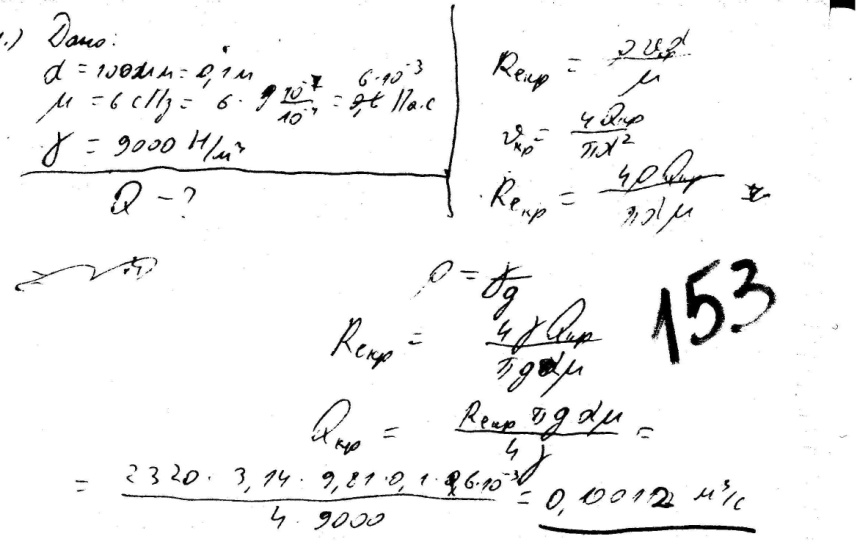 1.) Дано:
d = 100мм = 0,1м
μ = 6 сПз = 6 · 10⁻³ Па.с
γ = 9000 Н/м³
Q - ?
Reкр = ρυd/μ
υкр = 4Qкр/πd²
Reкр = 4ρQкр/πdμ
ρ = γ/g
153
Reкр = 4γQкр/πgdμ
Qкр = Reкр πgdμ/4γ =
= 2320 · 3,14 · 9,81 · 0,1 · 6·10⁻³/4 · 9000 = 0,10012 м³/с